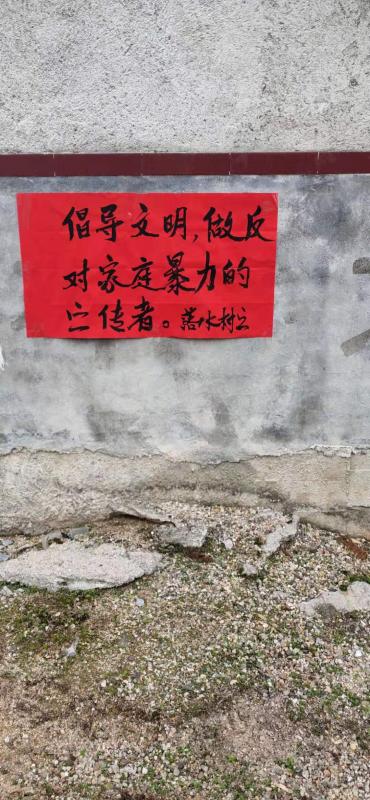 倡导文明,做反
对家庭暴力的
宣传者。落水村宣